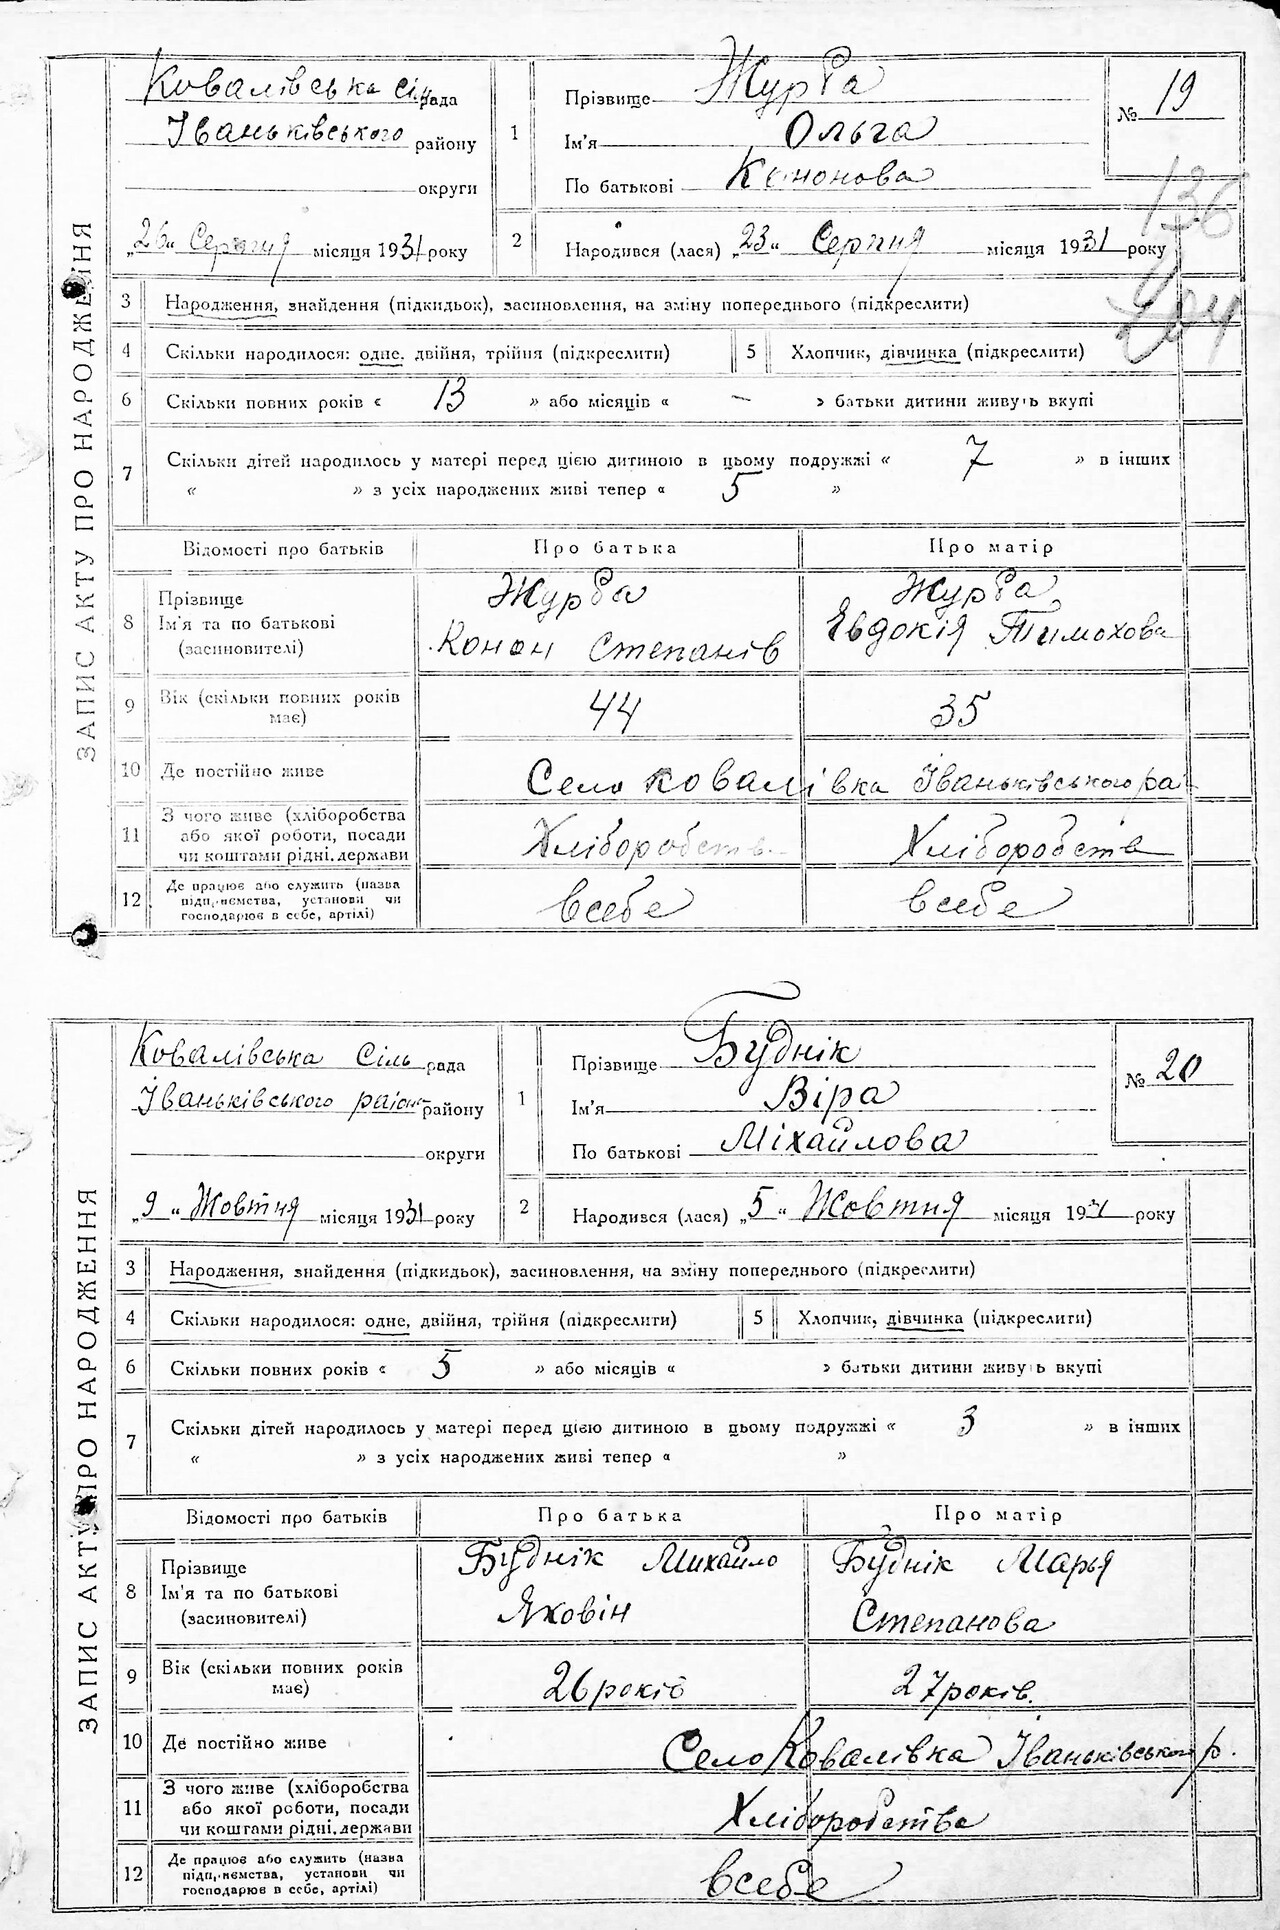 ЗАПИС АКТУ ПРО НАРОДЖЕННЯ
Ковалівська сіль рада
Іваньківського району
округи
„26“ Серпня місяця 1931 року
1
Прізвище Журба
Ім'я Ольга
По батькові Кононова
№ 19
136
204
2 Народився (лася) „23“ Серпня місяця 1931 року
3 Народження, знайдення (підкидьок), засиновлення, на зміну попереднього (підкреслити)
4 Скільки народилося: одне, двійня, трійня (підкреслити) 5 Хлопчик, дівчинка (підкреслити)
6 Скільки повних років « 13 » або місяців « — » батьки дитини живуть вкупі
7 Скільки дітей народилось у матері перед цією дитиною в цьому подружжі « 7 » в інших
« » з усіх народжених живі тепер « 5 »
Відомості про батьків Про батька Про матір
8 Прізвище Журба Журба
Ім'я та по батькові Конон Степанів Євдокія Тимохова
(засиновителі)
9 Вік (скільки повних років має) 44 35
10 Де постійно живе Село Ковалівка Іваньківського ра
11 З чого живе (хліборобства
або якої роботи, посади Хліборобств Хліборобств
чи коштами рідні, держави
12 Де працює або служить (назва
підприємства, установи чи всебе всебе
господарює в себе, артілі)
ЗАПИС АКТУ ПРО НАРОДЖЕННЯ
Ковалівська Сіль рада
Іваньківського району
округи
„9“ Жовтня місяця 1931 року
1
Прізвище Буднік
Ім'я Віра
По батькові Міхайлова
№ 20
2 Народився (лася) „5“ Жовтня місяця 1931 року
3 Народження, знайдення (підкидьок), засиновлення, на зміну попереднього (підкреслити)
4 Скільки народилося: одне, двійня, трійня (підкреслити) 5 Хлопчик, дівчинка (підкреслити)
6 Скільки повних років « 5 » або місяців « » батьки дитини живуть вкупі
7 Скільки дітей народилось у матері перед цією дитиною в цьому подружжі « 3 » в інших
« » з усіх народжених живі тепер « »
Відомості про батьків Про батька Про матір
8 Прізвище Буднік Михайло Буднік Марья
Ім'я та по батькові Яковін Степанова
(засиновителі)
9 Вік (скільки повних років має) 26 років 27 років.
10 Де постійно живе Село Ковалівка Іваньківського р.
11 З чого живе (хліборобства
або якої роботи, посади Хліборобства
чи коштами рідні, держави
12 Де працює або служить (назва
підприємства, установи чи всебе
господарює в себе, артілі)